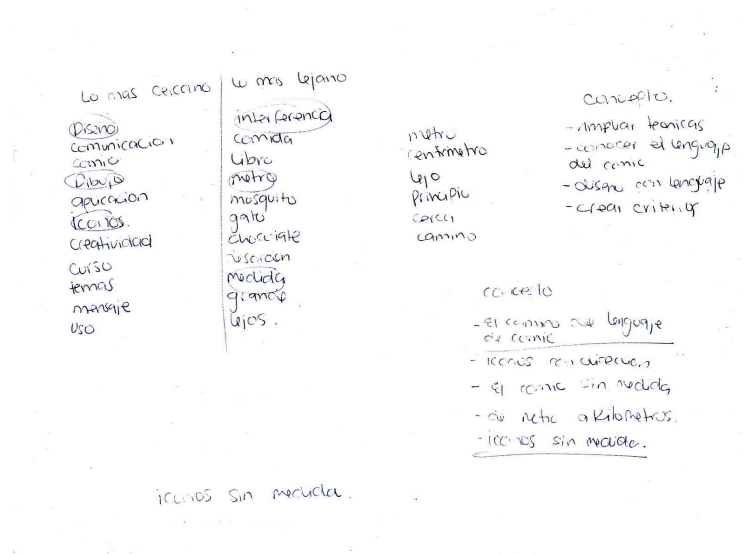 Lo mas cercano
Diseno
comunicacion
comic
Dibujo
aplicacion
iconos.
creatividad
curso
temas
mensaje
uso
Lo mas lejano
interferencia
comida
libro
metro
mosquito
gato
chocolate
medida
grande
lejos.
metro
centimetro
lejo
principio
cerca
camino
concepto.
- Ampliar tecnicas
- conocer el lenguaje
del comic
- diseno con lenguaje
- crear criterios
concepto
- El camino del lenguaje
de comic
- iconos con direccion
- El comic sin medida
- de metro a kilometros.
- iconos sin medida.
iconos sin medida.